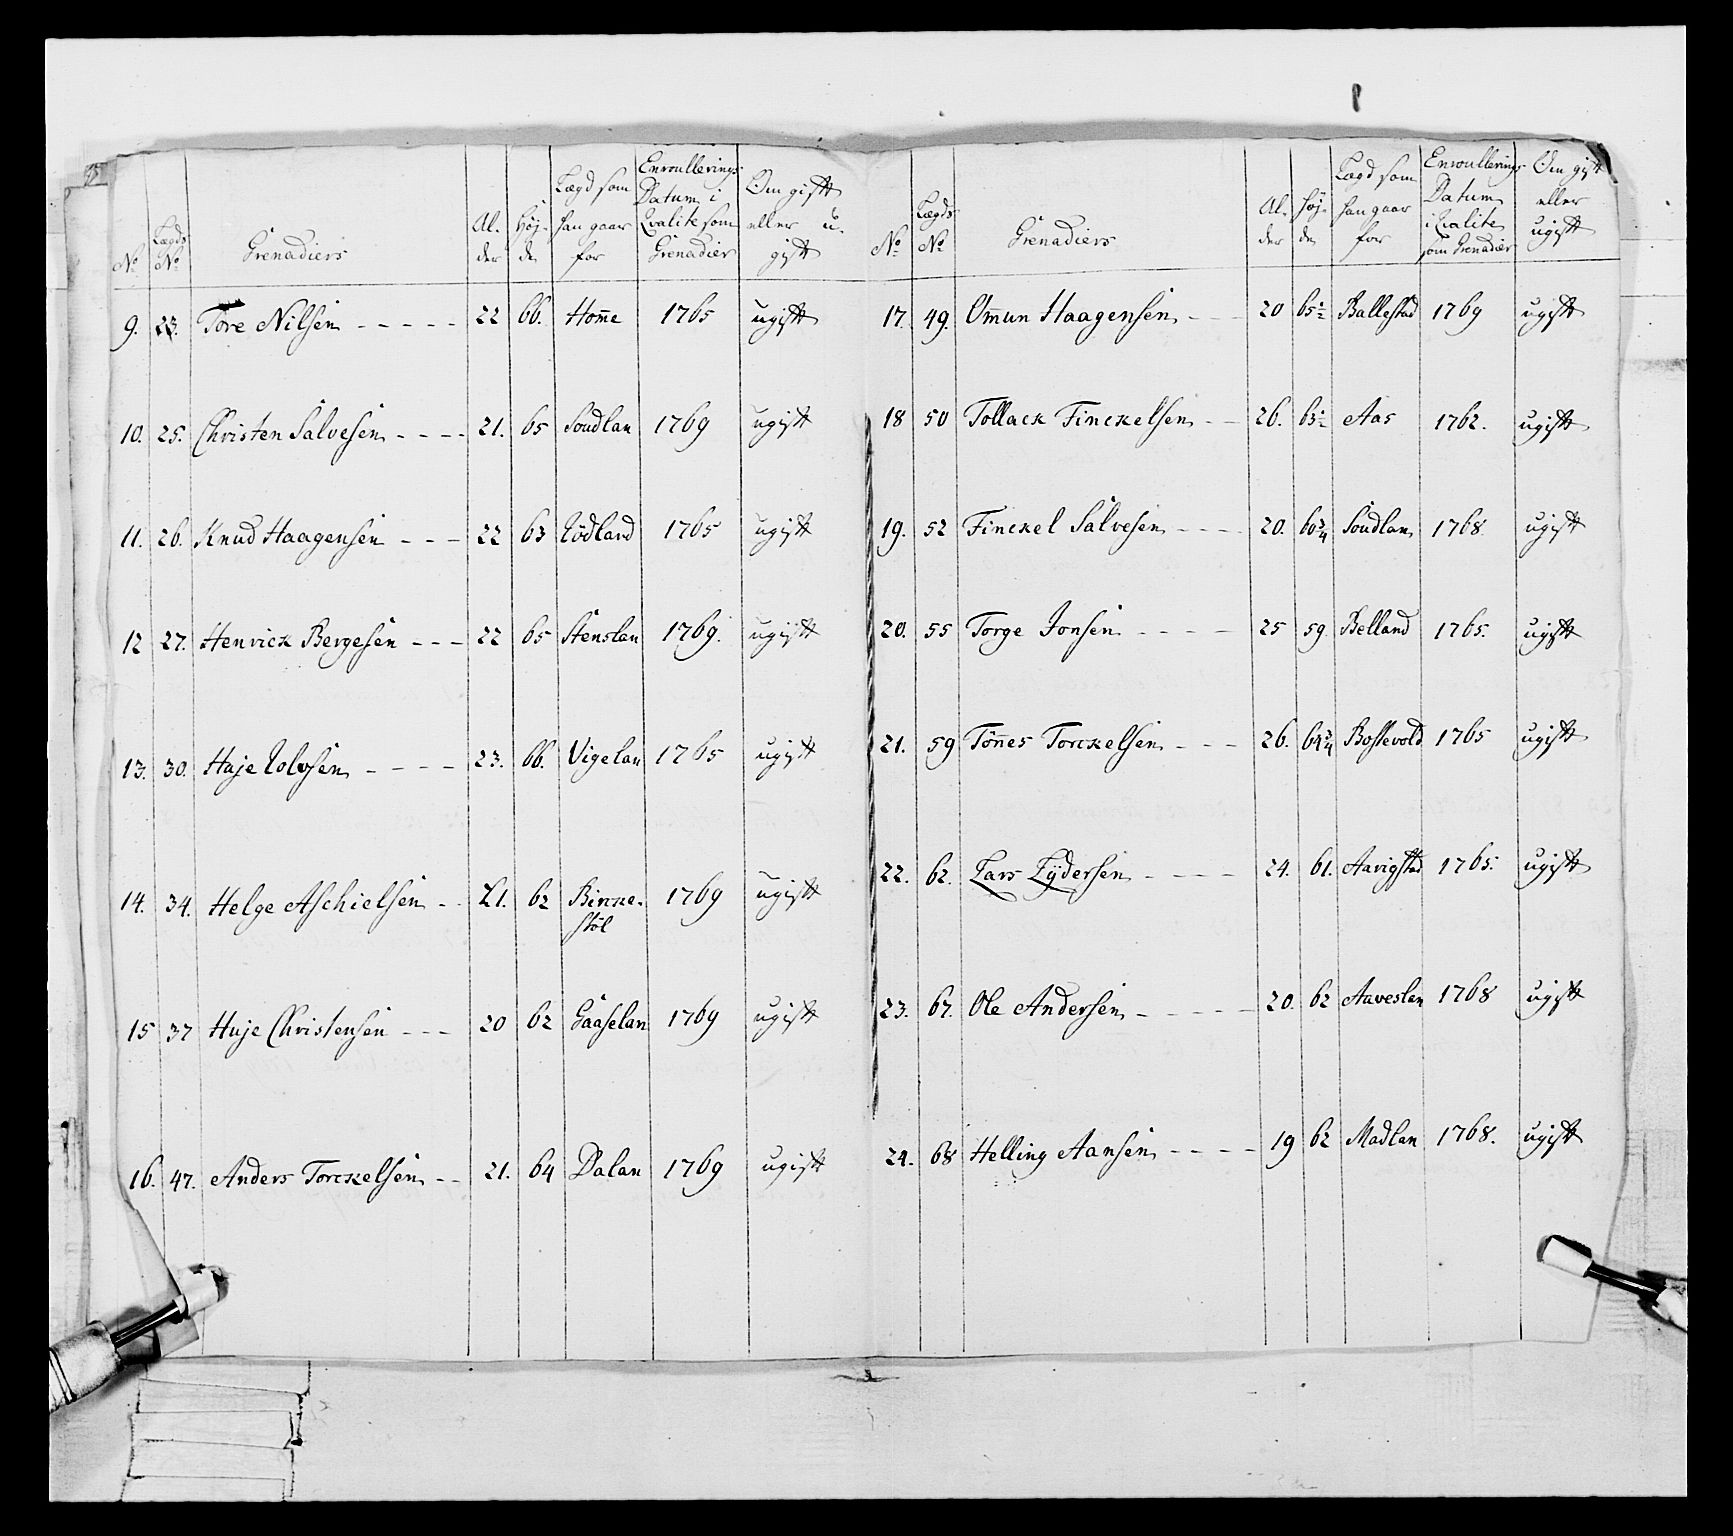 No Lægds No Grenadiers Alder Höjde Lægd som han gaar for Enroullerings Datum i Qvalite som Grenadier Om gift eller ugift
9. 23. Tore Nilsen 22 66. Hom̅e 1765 ugift
10. 25. Christen Salvesen 21. 65 Soudlan 1769 ugift
11. 26. Knud Haagensen 22 63 Rödland 1765 ugift
12 27. Henrick Bergesen 22 65 Stenslan 1769. ugift
13. 30. Haje Rolvsen 23. 66. Vigelan 1765 ugift
14. 34. Helge Aschielsen 21. 62 Birke-
stöl 1769 ugift
15 37 Huje Christensen 20 62 Gaaselan 1769 ugift
16. 47. Anders Torckelsen 21. 64 Dalan 1769 ugift
No Lægds No Grenadiers Alder höjde Lægd som han gaar for Enroullerings Datum i Qvalite som Grenadier Om gift eller ugift
17. 49. Omun Haagensen 20 65½ Ballestad 1769 ugift
18 50 Tollack Finckelsen 26. 63½ Aas 1762. ugift
19. 52 Finckel Salvesen 20. 60¾ Soudlan 1768 ugift
20. 55 Torge Jonsen 25 59 Belland 1765. ugift
21. 59 Tön̅es Torckelsen 26. 64¾ Bossevold 1765 ugift
22. 62. Lars Lÿdersen 24. 61. Aavigstad 1765. ugift
23. 67. Ole Andersen 20. 62 Aaveslan 1768 ugift
24. 68 Helling Aansen 19 62 Madlan 1768. ugift